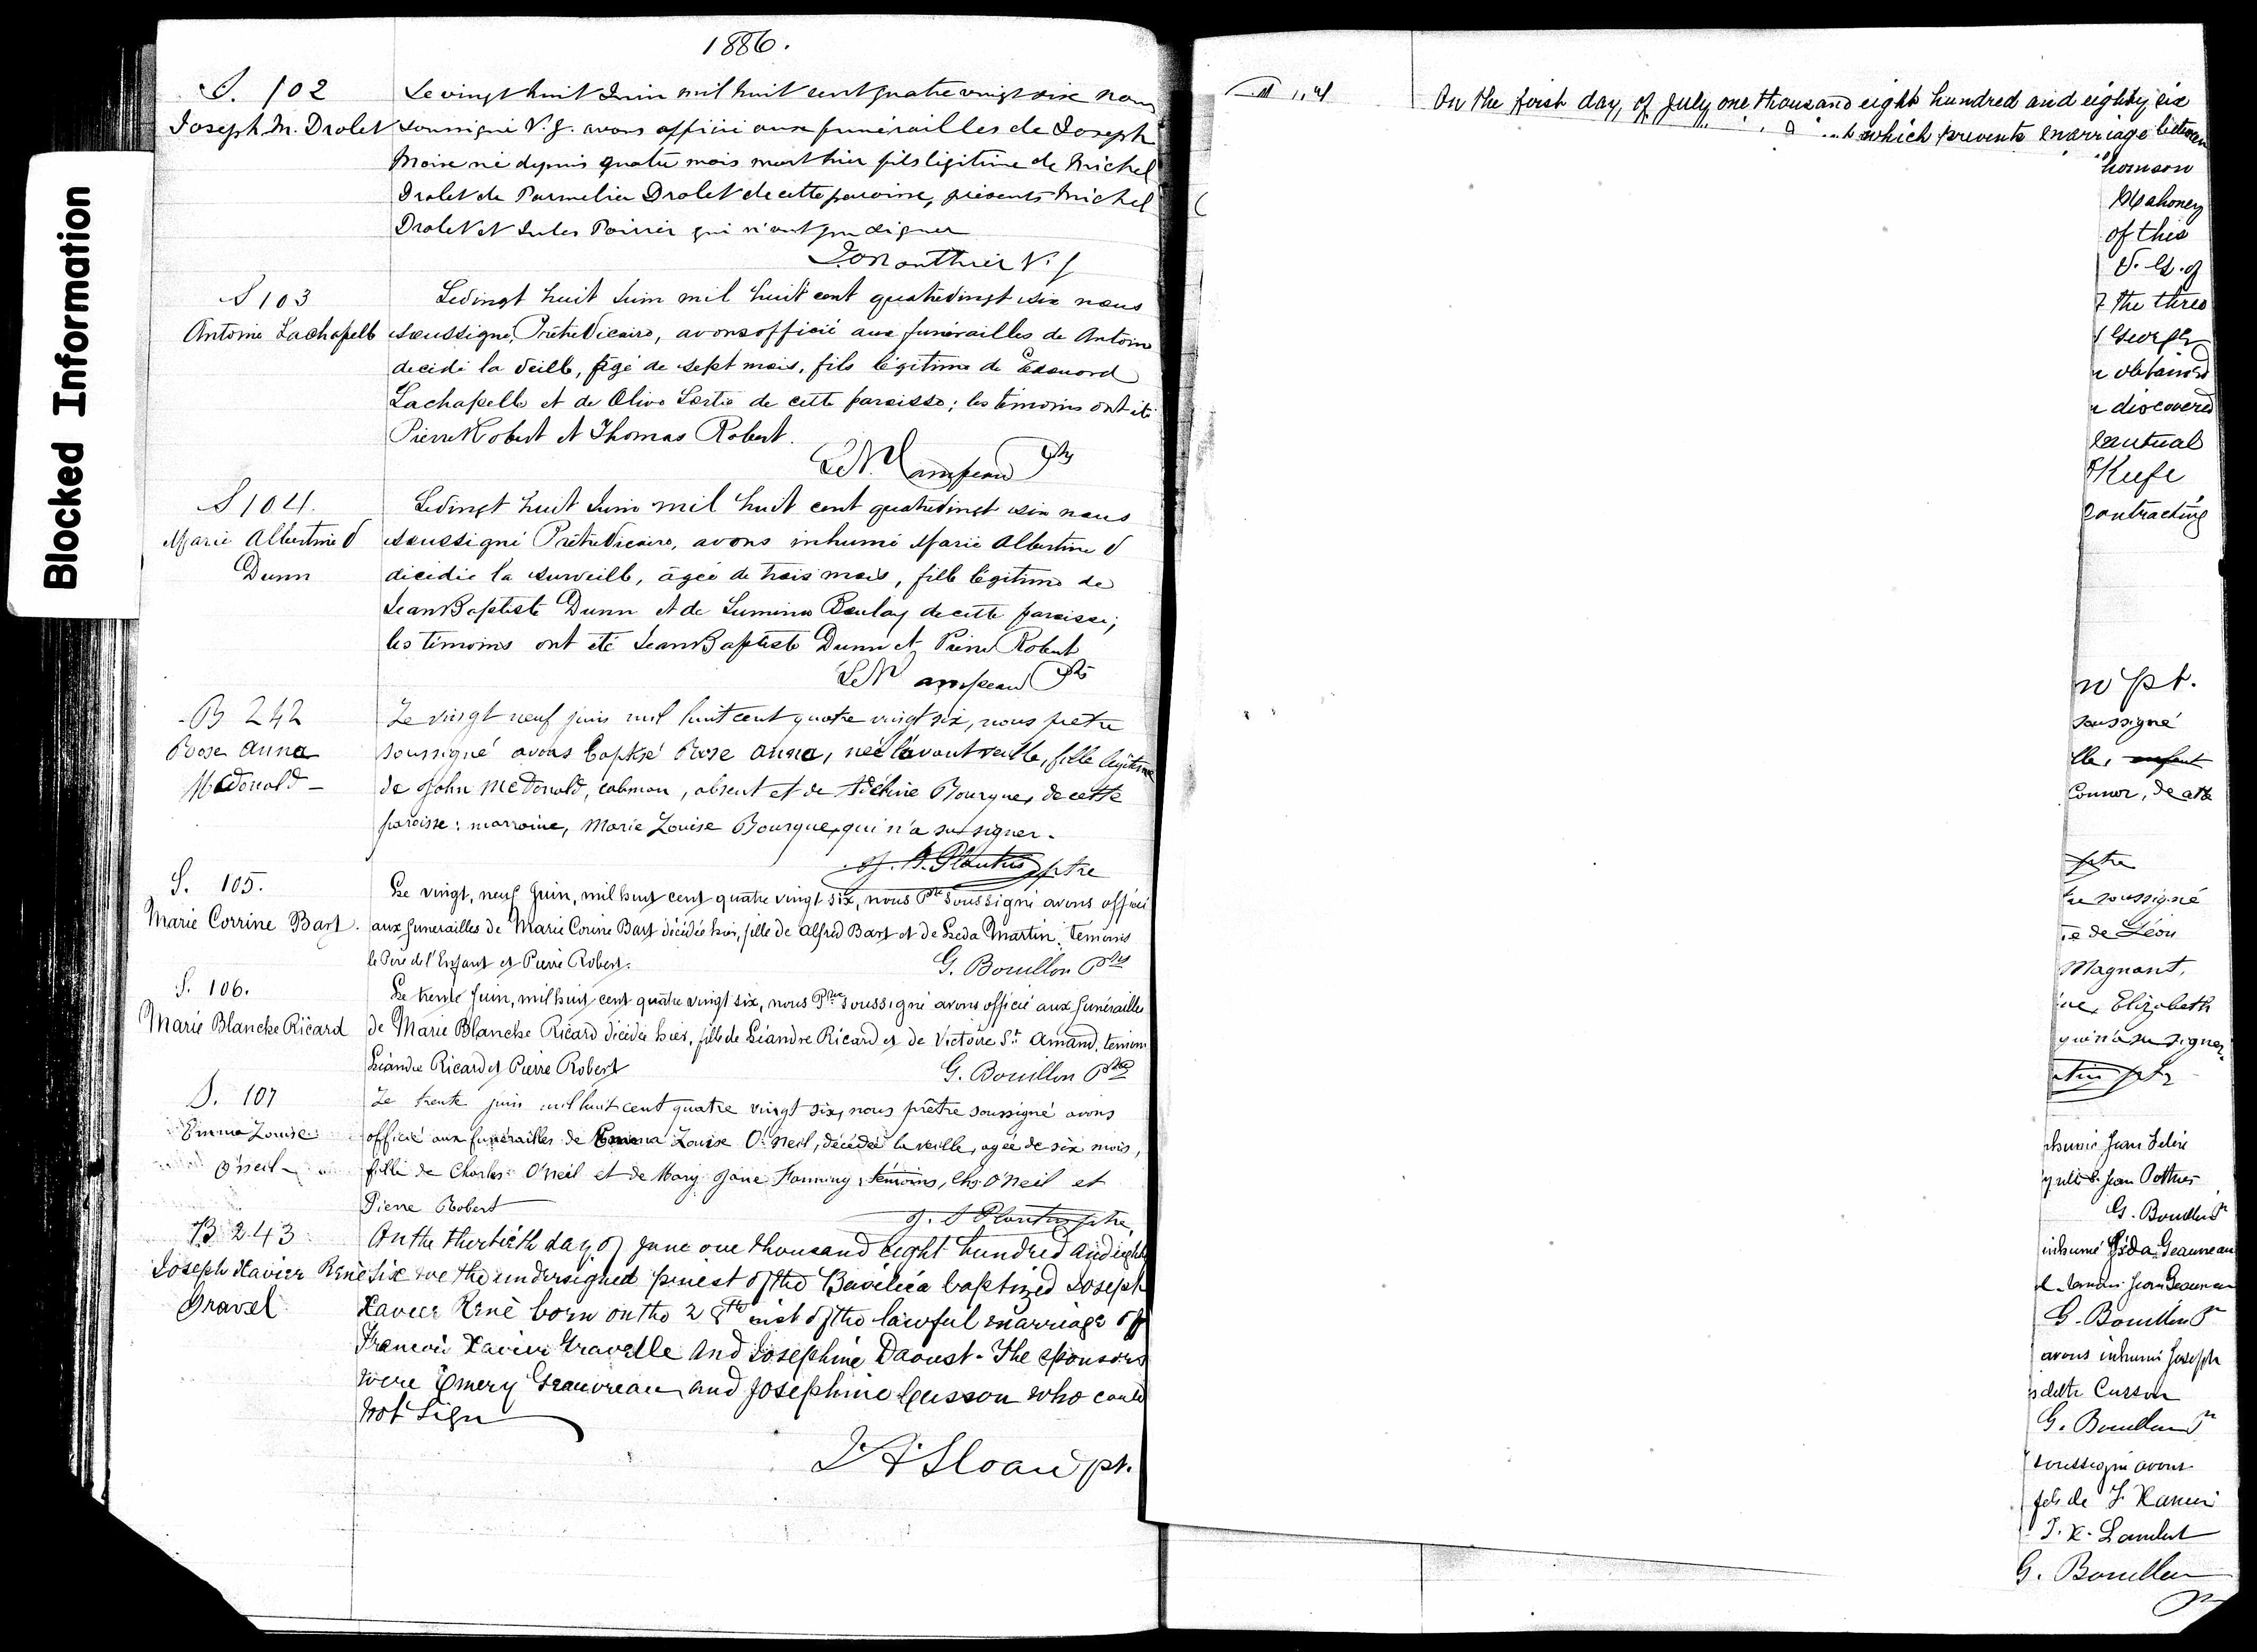 Blocked Information
1886.
S. 102
Joseph M. Drolet
Le vingt huit Juin mil huit cent quatre vingt six nous
soussigné V. G. avons officié aux funérailles de Joseph
Moise né depuis quatre mois mort hier fils légitime de Michel
Drolet de Parmelia Drolet de cette paroisse, présents Michel
Drolet et Jules Poirier qui n'ont pu signer
V. G.
S 103
Antoine Lachapelle
Le vingt huit Juin mil huit cent quatre vingt six nous
soussigné, Prêtre Vicaire, avons officié aux funérailles de Antoine
décédé la veille, âgé de sept mois, fils légitime de Edouard
Lachapelle et de Olive de cette paroisse; les témoins ont été
Pierre Robert et Thomas Robert.
Campeau Ptre
S 104.
Marie Albertine
Dunn
Le vingt huit Juin mil huit cent quatre vingt six nous
soussigné Prêtre Vicaire, avons inhumé Marie Albertine
décédée la surveille, âgée de trois mois, fille légitime de
Jean Baptiste Dunn et de Lumina Boulay de cette paroisse;
les témoins ont été Jean Baptiste Dunn et Pierre Robert
Campeau Ptre
B 242
Rose Anna
McDonald -
Le vingt neuf juin mil huit cent quatre vingt six, nous prêtre
soussigné avons baptisé Rose Anna, née l'avant veille, fille légitime
de John McDonald, cabman, absent et de Adéline Bourque, de cette
paroisse: marraine, Marie Louise Bourque, qui n'a su signer.
J. A. Plantin ptre
S. 105.
Marie Corrine Bart.
Le vingt, neuf Juin, mil huit cent quatre vingt six, nous Ptre soussigné avons officié
aux funerailles de Marie Corine Bart décédée hier, fille de Alfred Bart et de Leda Martin. temoins
le Père de l'Enfant et Pierre Robert.
G. Bouillon Ptre
S. 106.
Marie Blanche Ricard
Le trente Juin, mil huit cent quatre vingt six, nous Ptre soussigné avons officié aux funérailles
de Marie Blanche Ricard décédée hier, fille de Léandre Ricard et de Victoire St. Amand. temoins
Léandre Ricard et Pierre Robert
G. Bouillon Ptre
S. 107
Emma Louise
O'neil -
Le trente juin mil huit cent quatre vingt six, nous prêtre soussigné avons
officié aux funérailles de Emma Louise O'Neil, décédée la veille, agée de six mois,
fille de Charles O'Neil et de Mary Jane Fanning, témoins, Chs O'Neil et
Pierre Robert
J. A Plantin ptre,
B 243
Joseph Xavier René
Gravel
On the thirtieth day of June one thousand eight hundred and eighty
six we the undersigned priest of the Basilica baptized Joseph
Xavier René born on the 28th inst of the lawful marriage of
Francois Xavier Gravelle and Josephine Daoust. The sponsors
were Emery Geauvreau and Josephine Cusson who could
not sign
Sloan pt.
On the first day, of July one thousand eight hundred and eighty six
which prevents marriage between
homson
Mahoney
of this
V. G. of
the three
George
obtained
discovered
Keefe
contracting
pt.
soussigné
lle, enfant
Connor, de cette
ptre
tre soussigné
de Léon
Magnant,
Elizabeth
qui n'a su signer
nhumé Jean
Jean Pothier
G. Bouillon Pr
inhumé Léda Geauvreau
temoin Jean Geauvreau
G. Bouillon Pr
avons inhumé Joseph
delte Cusson
G. Bouillon Pr
soussigné avons
fils de F. Xavier
F. X. Lambert
G. Bouillon